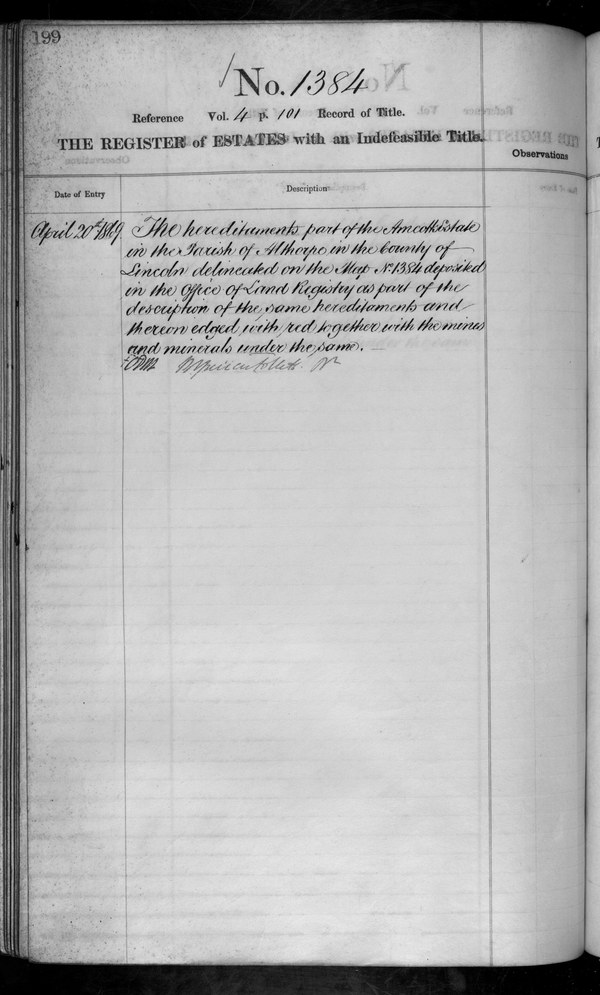 199
No. 1384
Reference Vol. 4 p. 101 Record of Title.
THE REGISTER of ESTATES with an Indefeasible Title.
Observations
Date of Entry
Description
April 20th 1869
The hereditaments part of the Amcotts Estate
in the Parish of Althorpe in the County of
Lincoln delineated on the Map No. 1384 deposited
in the Office of Land Registry as part of the
description of the same hereditaments and
thereon edged with red together with the mines
and minerals under the same.